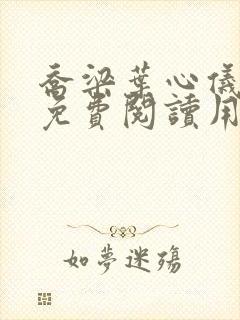 喬梁葉心儀
免費閱讀用
如夢迷殤